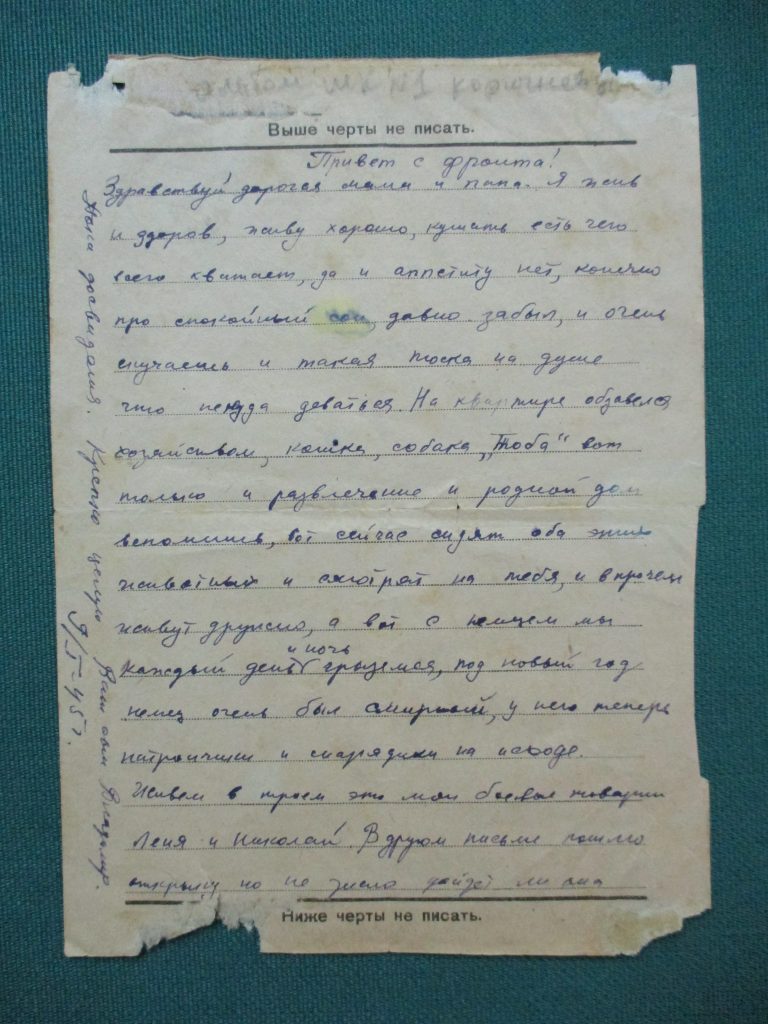 Выше черты не писать.
Привет с фронта!
Здравствуй дорогая мама и папа. Я жив
и здоров, живу хорошо, кушать есть чего
всего хватает, да и аппетиту нет, конечно
про спокойный сон, давно забыл, и очень
скучаешь и такая тоска на душе
что некуда деваться. На квартире обзавелся
хозяйсивом, кошка, собака „Тоба" вот
только и развлечение и родной дом
вспомнишь, вот сейчас сидят оба эти
животных и смотрят на тебя, и впрочем
живут дружно, а вот с немцем мы
и ночь
каждый день грыземся, под новый год
немец очень был смирный, у него теперь
патрончики и снарядики на исходе.
Живем в троем это мои боевые товарищи
Леня и Николай. В другом письме пошлю
открытку но не знаю дойдет ли она
Ниже черты не писать.
Пока досвидания. Крепко целую Ваш сын Владимир.
9/I-45 г.